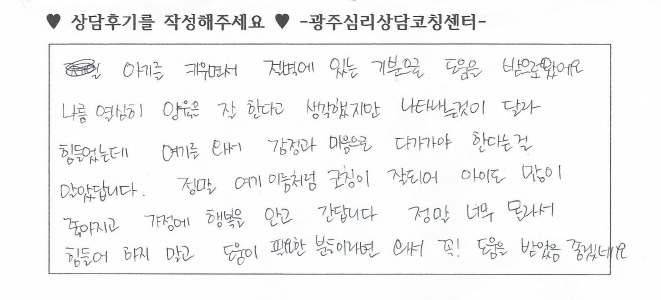 ♥ 상담후기를 작성해주세요 ♥ -광주심리상담코칭센터-
아기를 키우면서 절벽에 있는 기분으로 도움을 받으로왔어요
나름 열심히 양육을 잘 한다고 생각했지만 나타내는것이 달라
힘들었는데 여기를 와서 감정과 마음으로 다가가야 한다는걸
알았답니다. 정말 여기 이름처럼 코칭이 잘되어 아이도 많이
좋아지고 가정에 행복을 안고 간답니다 정말 너무 몰라서
힘들어 하지 말고 도움이 필요한 분들이라면 와서 꼭! 도움을 받았음 좋겠네요